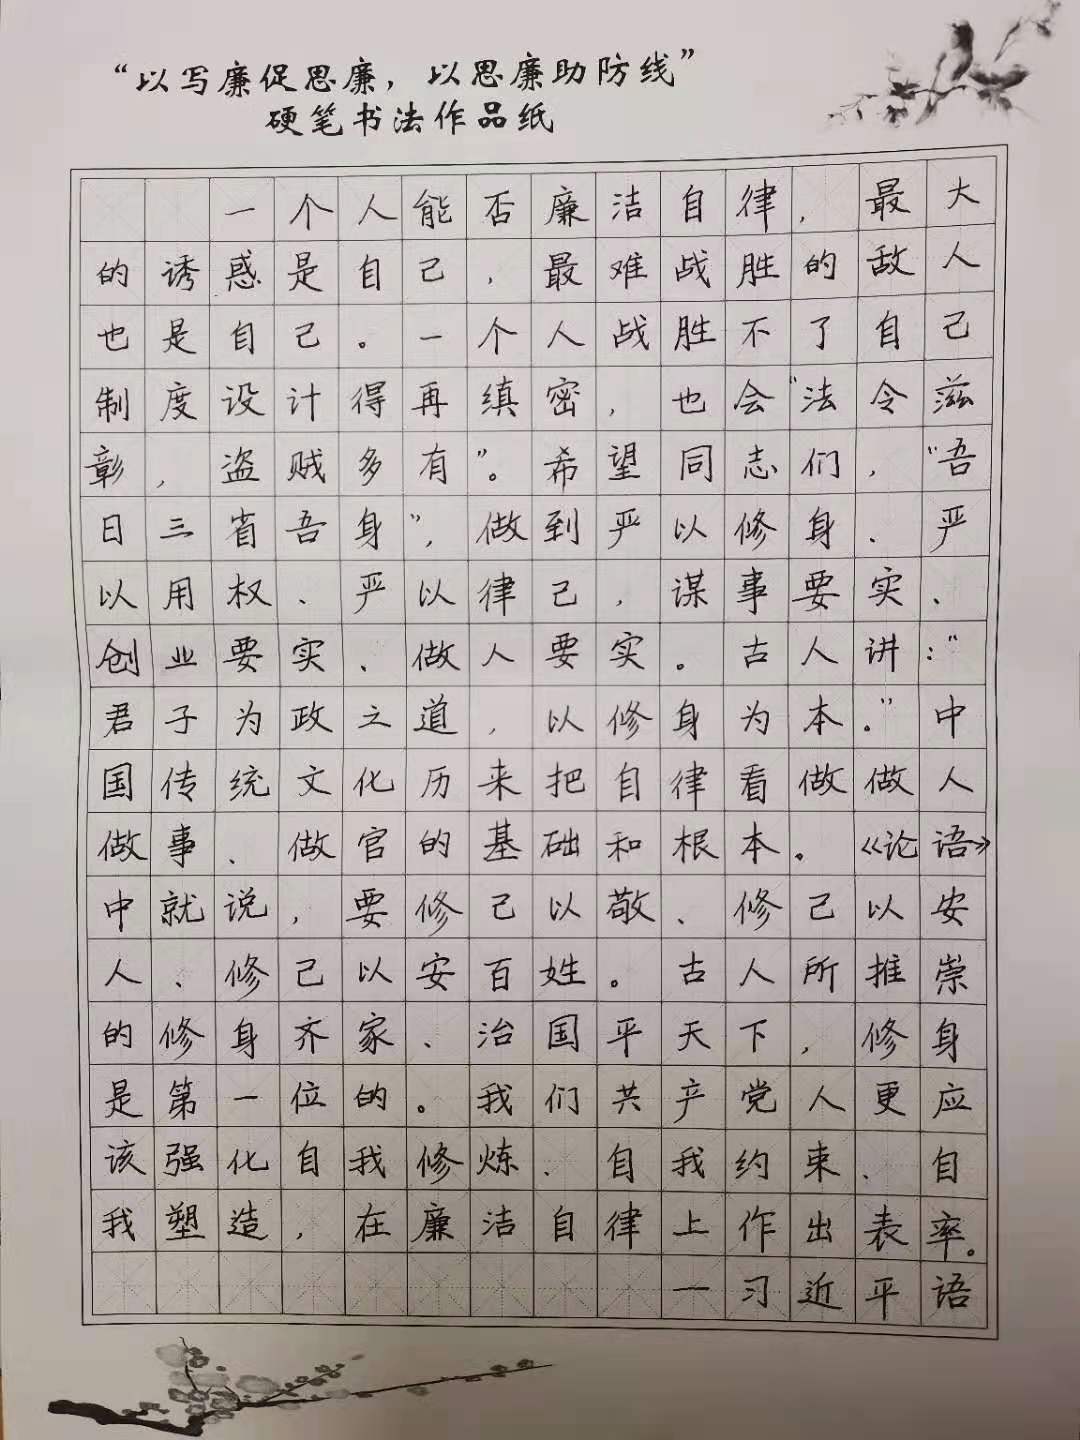 “以写廉促思廉，以思廉助防线”
硬笔书法作品纸
一个人能否廉洁自律，最大
的诱惑是自己，最难战胜的敌人
也是自己。一个人战胜不了自己
制度设计得再缜密，也会“法令滋
彰，盗贼多有”。希望同志们，“吾
日三省吾身”，做到严以修身、严
以用权、严以律己，谋事要实、
创业要实、做人要实。古人讲：“
君子为政之道，以修身为本。”中
国传统文化历来把自律看做做人
做事、做官的基础和根本。《论语》
中就说，要修己以敬、修己以安
人、修己以安百姓。古人所推崇
的修身齐家、治国平天下，修身
是第一位的。我们共产党人更应
该强化自我修炼、自我约束、自
我塑造，在廉洁自律上作出表率。
一习近平语